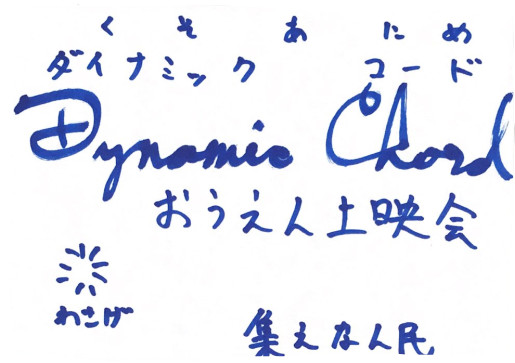 くそあにめ
ダイナミックコード
Dynamic Chord
おうえん上映会
わさげ
集えなん民